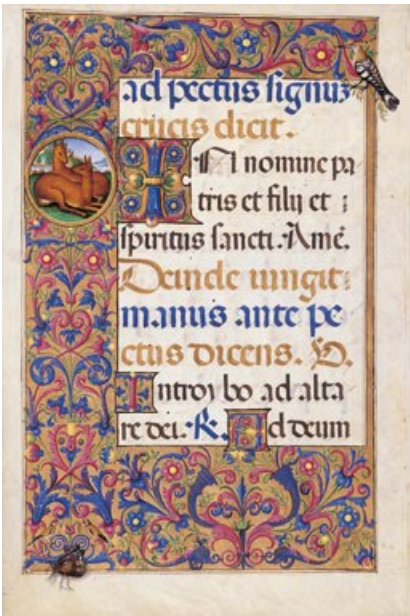 ad pectus signuz
crucis dicit.
IN nomine pa
tris et filij et ;
spiritus sancti. Amē.
Deinde iungit:
manus ante pe
ctus dicens. V.
Introybo ad alta
re dei. R. Ad deum